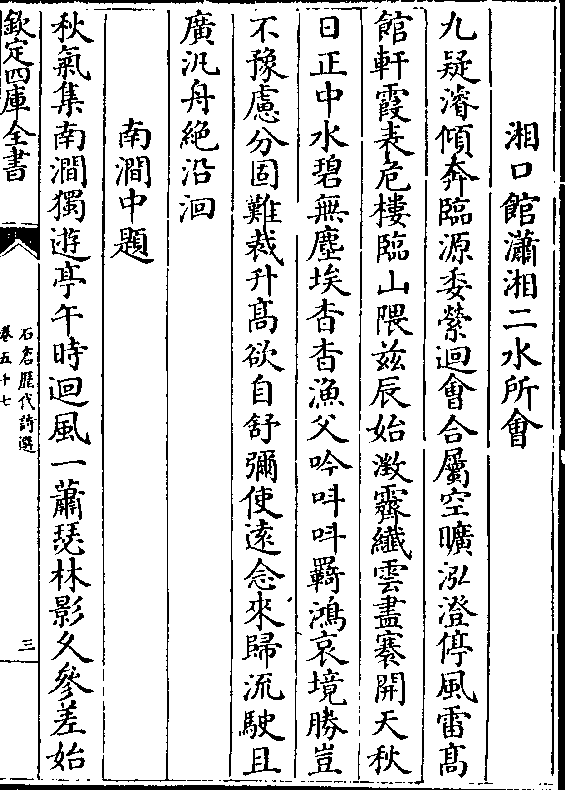 湘口館瀟湘二水所會
九疑濬傾奔臨源委縈迴會合屬空曠泓澄停風雷髙
館軒霞表危樓臨山隈兹辰始澂霽纖雲盡褰開天秋
日正中水碧無塵埃杳杳漁父吟叫叫羇鴻哀境勝豈
不豫慮分固難裁升髙欲自舒彌使遠念來歸流駛且
廣汎舟絶沿洄
南澗中題
秋氣集南澗獨遊亭午時迴風一蕭瑟林影久參差始
欽定四庫全書
石倉歷代詩選
卷五十七
三